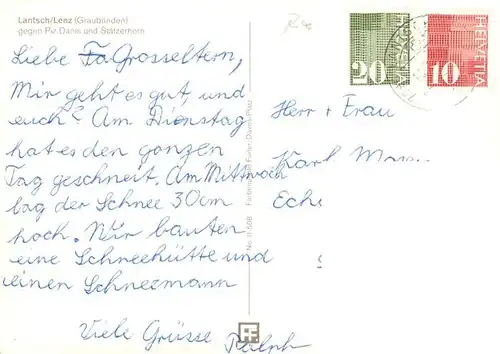 Lantsch/Lenz (Graubünden)
gegen Piz Danis und Stätzerhorn
Liebe Grosseltern,
Mir geht es gut, und
euch? Am Dienstag
hat es den ganzen
Tag geschneit. Am Mittwoch
lag der Schnee 30 cm
hoch. Wir bauten
eine Schneehütte und
einen Schneemann
Viele Grüsse Ralph
20 HELVETIA
10 HELVETIA
Herr + Frau
Karl
No. 11 508